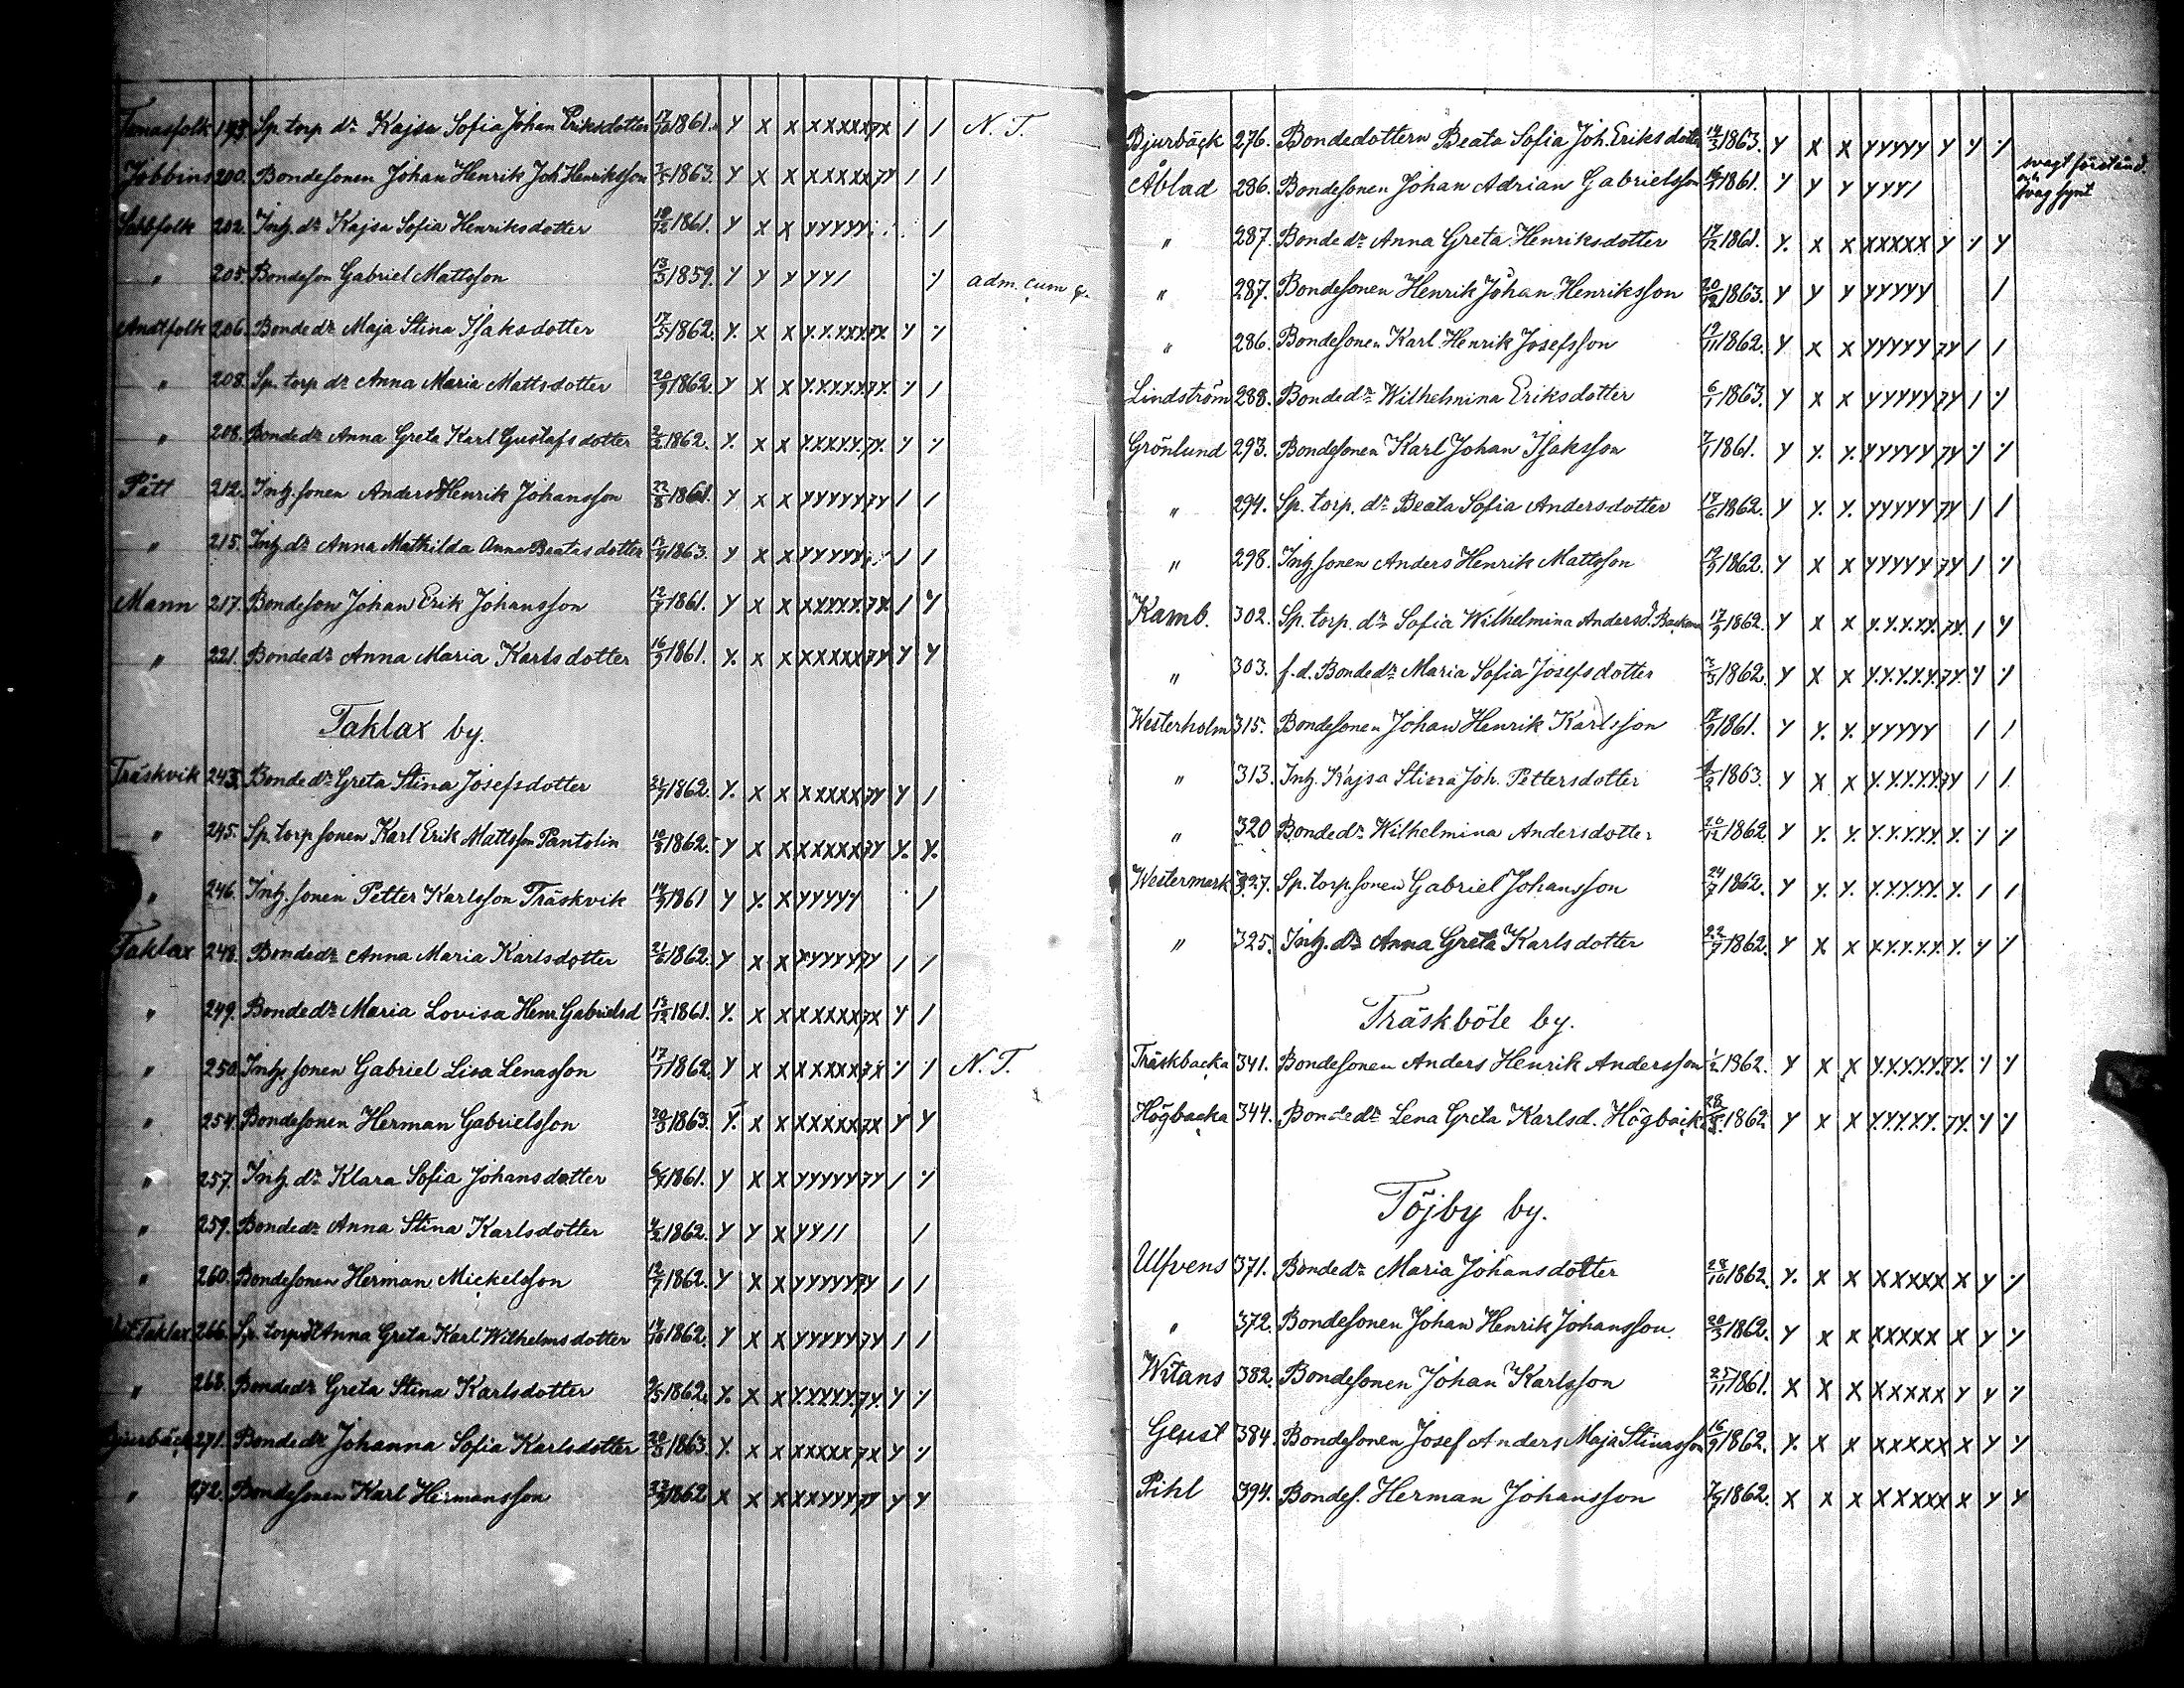 Tomasfolk 193. Sp. torp. dr Kajsa Sofia Johan Eriksdotter 17/10 1861. Y X X XXXXX 7X / / N. T.
Jobbins 200. Bondesonen Johan Henrik Joh. Henriksson 1863. Y X X XXXXX 7Y / /
Sebbfolk 202. Inh. dr Kajsa Sofia Henriksdotter 18/12 1861. Y X X YYYYY /
" 205. Bondeson Gabriel Mattsson 13/3 1859. Y Y Y YY/ ⁒ adm. cum
Andtfolk 206. Bonde dr Maja Stina Isaksdotter 17/5 1862. Y. X X Y.Y.XXX 7X Y ⁒
" 208. Sp. torp dr Anna Maria Mattsdotter 20/9 1862. Y X X Y.X.Y.Y. 7Y. ⁒ /
" 208. Bonde dr Anna Greta Karl Gustafsdotter 2/2 1862. Y. X X Y.XXY.Y. 7Y. Y ⁒
Pått 212. Inh. sonen Anders Henrik Johansson 22/8 1861. Y X X YYYYY 7Y / /
" 215. Inh. dr Anna Mathilda Anna Beatasdotter 1863. Y X X YYYYY / /
Mann 217. Bondeson Johan Erik Johansson 1861. Y X X XXXXX 7X / Y
" 221. Bonde dr Anna Maria Karlsdotter 16/9 1861. Y. X X XXXXX 7Y Y Y
Taklax by.
Träskvik 243. Bonde dr Greta Stina Josefsdotter 1862. Y. X X XXXXX 7Y Y /
" 245. Sp. torp sonen Karl Erik Mattsson Pantolin 1862. Y X X XXXXX 7Y Y. Y.
" 246. Inh. sonen Petter Karlsson Träskvik 1861 Y Y. X YYYYY /
Taklax 248. Bonde dr Anna Maria Karlsdotter 21/6 1862. Y X X YYYYY 7Y / /
" 249. Bonde dr Maria Lovisa Henr. Gabrielsd 13/12 1861. Y. X X XXXXX 7X Y /
" 250. Inh. sonen Gabriel Lisa Lenasson 17/7 1862. Y X X XXXXX 7X ⁒ ⁒ N. T.
" 254. Bondesonen Herman Gabrielsson 30/3 1863. Y. X X XXXXX 7X Y Y
" 257. Inh. dr Klara Sofia Johansdotter 1861. Y X X YYYYY 7Y / ⁒
" 259. Bonde dr Anna Stina Karlsdotter 4/2 1862. Y Y X YY// /
" 260. Bondesonen Herman Mickelsson 12/7 1862. Y X X YYYYY 7Y / /
Taklax 266. Sp. torp dr Anna Greta Karl Wilhelmsdotter 14/10 1862. Y X X XXXXX 7Y / /
" 268. Bonde dr Greta Stina Karlsdotter 9/5 1862. Y. X X Y.XXX.Y. 7Y. Y ⁒
Bjurbäck 271. Bonde dr Johanna Sofia Karlsdotter 1863. Y. X X XXXXX 7X Y ⁒
" 272. Bondesonen Karl Hermansson 1862 X X X XXYYY 7Y Y Y
Bjurbäck 276. Bondedottern Beata Sofia Joh. Eriksdotter 14/3 1863. Y X X YYYYY Y ⁒ ⁒
Åblad 286. Bondesonen Johan Adrian Gabrielsson 1861. Y Y Y YYY/ svagt förstånd
och
svag synt
" 287. Bonde dr Anna Greta Henriksdotter 17/12 1861. Y. X X XXXXX Y ⁒ Y
" 287. Bondesonen Henrik Johan Henriksson 20/12 1863. Y Y Y YYYYY /
" 286. Bondesonen Karl Henrik Josefsson 1862. Y X X YYYYY 7Y / /
Lindström 288. Bonde dr Wilhelmina Eriksdotter 6/1 1863. Y X X YYYYY 7Y / ⁒
Grönlund 293. Bondesonen Karl Johan Isaksson 7/1 1861. Y Y. Y. YYYYY 7Y ⁒ ⁒
" 294. Sp. torp. dr Beata Sofia Andersdotter 17/6 1862. Y Y. Y. YYYYY 7Y / /
" 298. Inh. sonen Anders Henrik Mattsson 1862. Y X X YYYYY 7Y / ⁒
Kamb. 302. Sp. torp. dr Sofia Wilhelmina Andersd. Backman 17/9 1862. Y X X Y.Y.XXX 7Y. / Y
" 303. f. d. Bonde dr Maria Sofia Josefsdotter 3/5 1862. Y X X Y.Y.Y.Y.Y. 7Y. ⁒ ⁒
Westerholm 315. Bondesonen Johan Henrik Karlsson 1861. Y Y. Y. YYYYY / /
" 313. Inh. Kajsa Stina Joh. Pettersdotter 1863. Y X X Y.Y.Y.Y.Y. 7Y / /
" 320 Bonde dr Wilhelmina Andersdotter 26/12 1862 Y Y. Y. Y.Y.XXY. Y. ⁒ ⁒
Westermark 327. Sp. torp. sonen Gabriel Johansson 24/7 1862. Y Y. Y. Y.Y.Y.Y.Y. Y. / /
" 325. Inh. dr Anna Greta Karlsdotter 22/9 1862. Y X X X.Y.X.X.Y. Y. Y ⁒
Träskböle by.
Träskbacka 341. Bondesonen Anders Henrik Andersson 1/2 1862. Y X X Y.XY.Y.Y. 7Y. ⁒ ⁒
Högbacka 344. Bonde dr Lena Greta Karlsd. Högback 1862 Y X X Y.Y.Y.XY. 7Y. ⁒ ⁒
Töjby by.
Ulfvens 371. Bonde dr Maria Johansdotter 28/10 1862 Y. X X XXXXX X Y ⁒
" 372. Bondesonen Johan Henrik Johansson 20/3 1862. Y X X XXXXX X Y ⁒
Witans 382. Bondesonen Johan Karlsson 25/11 1861. X X X XXXXX Y Y ⁒
Geust 384. Bondesonen Josef Anders Maja Stinasson 16/9 1862. Y. X X XXXXX X Y ⁒
Pihl 394. Bondes. Herman Johansson 1862. X X X XXXXX X Y Y